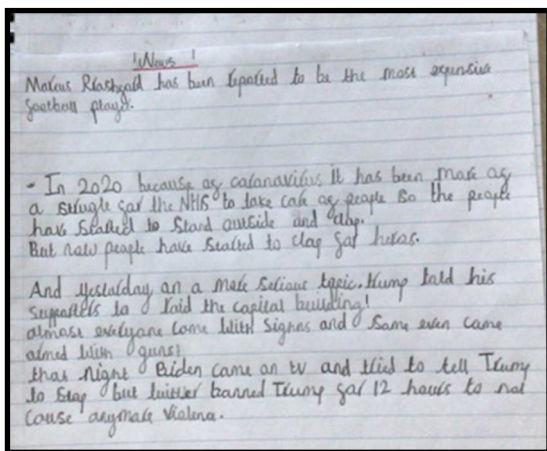 ! News !
Marcus Rashford has been reported to be the most expensive
football player.
- In 2020 because of coronavirus it has been more of
a strugle for the NHS to take care of people so the people
have started to stand outside and clap.
But now people have started to clap for heros.
And yestarday on a more serious topic. trump told his
supporters to raid the capital building!
almost everyone come with signs and some even came
armed with guns!
that night Biden came on tv and tried to tell Trump
to stop but twitter banned Trump for 12 hours to not
cause anymore violence.